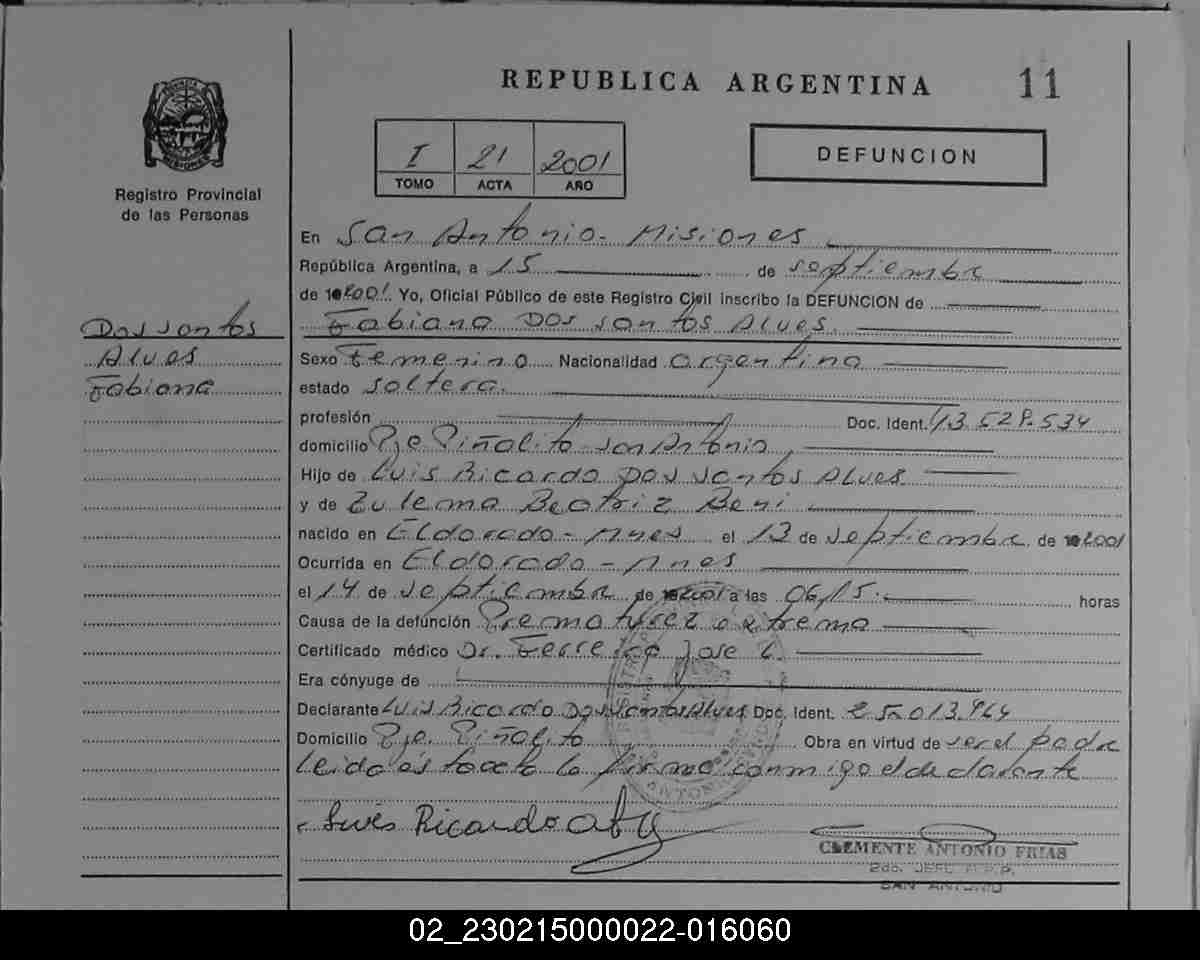 REPUBLICA ARGENTINA
11
MISIONES
Registro Provincial
de las Personas
I 21 2001
TOMO ACTA AÑO
DEFUNCION
En San Antonio - Misiones
República Argentina, a 15 de septiembre
de 2001. Yo, Oficial Público de este Registro Civil inscribo la DEFUNCION de
Fabiana Dos Santos Alves.
Dos santos
Alves
Fabiana
Sexo Femenino Nacionalidad argentina
estado soltera.
profesión Doc. Ident. 43.528.534
domicilio Pje Piñalito - San Antonio
Hijo de Luis Ricardo Dos Santos Alves
y de Zulema Beatriz Beni
nacido en Eldorado - Mnes el 13 de septiembre de 2001
Ocurrida en Eldorado - Mnes
el 14 de septiembre de 2001 a las 06,15. horas
Causa de la defunción Prematurez extrema
Certificado médico Dr. Ferreira Jose L.
Era cónyuge de
Declarante Luis Ricardo Dos Santos Alves Doc. Ident. 25.013.964
Domicilio Pje. Piñalito Obra en virtud de ser el padre
leida esta acta la firma conmigo el declarante
Luis Ricardo
CLEMENTE ANTONIO FRIAS
2do. JEFE R.P.P.
SAN ANTONIO
02_230215000022-016060